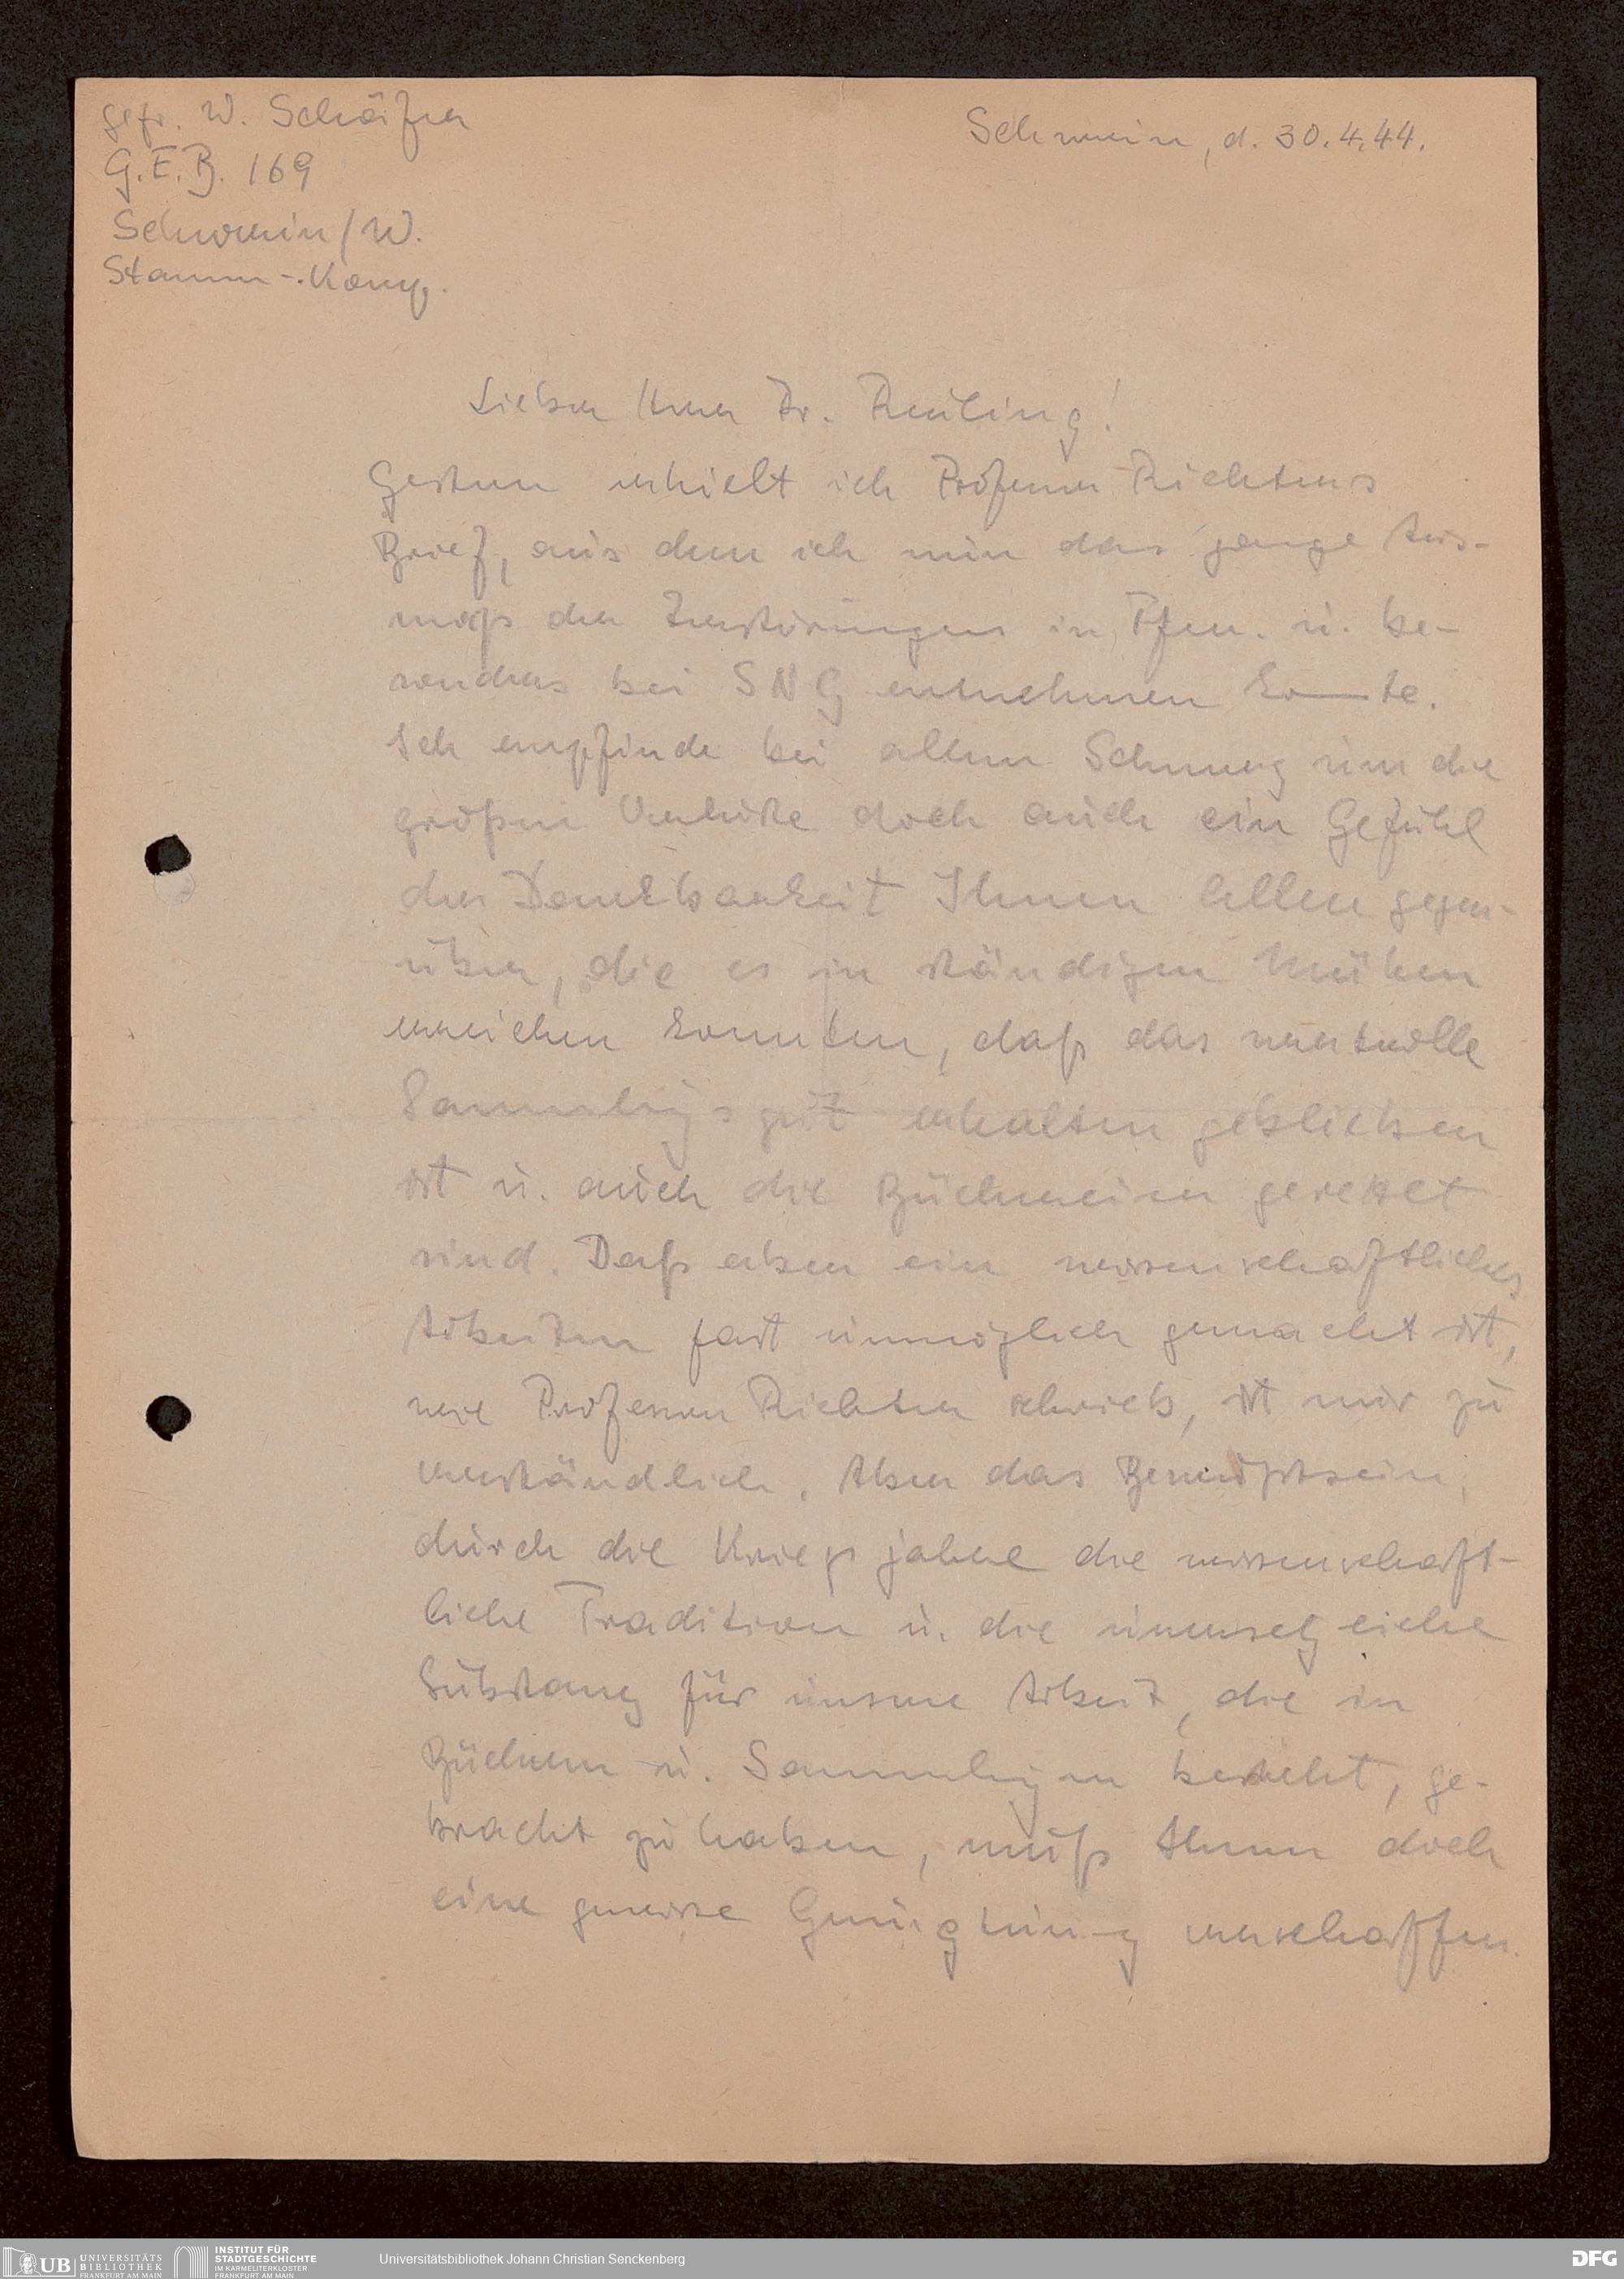 Gefr. W. Schäfer
G.E.B. 169
Schwerin/W.
Stamm-Komp.
Schwerin, d. 30.4.44.
Lieber Herr Dr.
Gestern erhielt ich Professor Richters
Brief, aus dem ich nun das ganze Aus-
maß der Zerstörungen in u. be-
sonders bei SNG entnehmen konnte.
Ich empfinde bei allem Schmerz um die
großen Verluste doch auch ein Gefühl
der Dankbarkeit Ihnen allen gegen-
über, die es in ständigen Mühen
erreichen konnten, daß das wertvolle
Sammlungsgut erhalten geblieben
ist u. auch die Büchereien gerettet
sind. Daß aber ein wissenschaftliches
Arbeiten fast unmöglich gemacht ist,
wie Professor Richter schrieb, ist mir zu
verständlich. Aber das Bewußtsein,
durch die Kriegsjahre die wissenschaft-
liche Tradition u. die unersetzliche
Substanz für unsere Arbeit, die in
Büchern u. Sammlungen besteht, ge-
bracht zu haben, muß Ihnen doch
eine gewisse Genugtuung verschaffen.
UB UNIVERSITÄTS
BIBLIOTHEK
FRANKFURT AM MAIN
INSTITUT FÜR
STADTGESCHICHTE
IM KARMELITERKLOSTER
FRANKFURT AM MAIN
Universitätsbibliothek Johann Christian Senckenberg
DFG